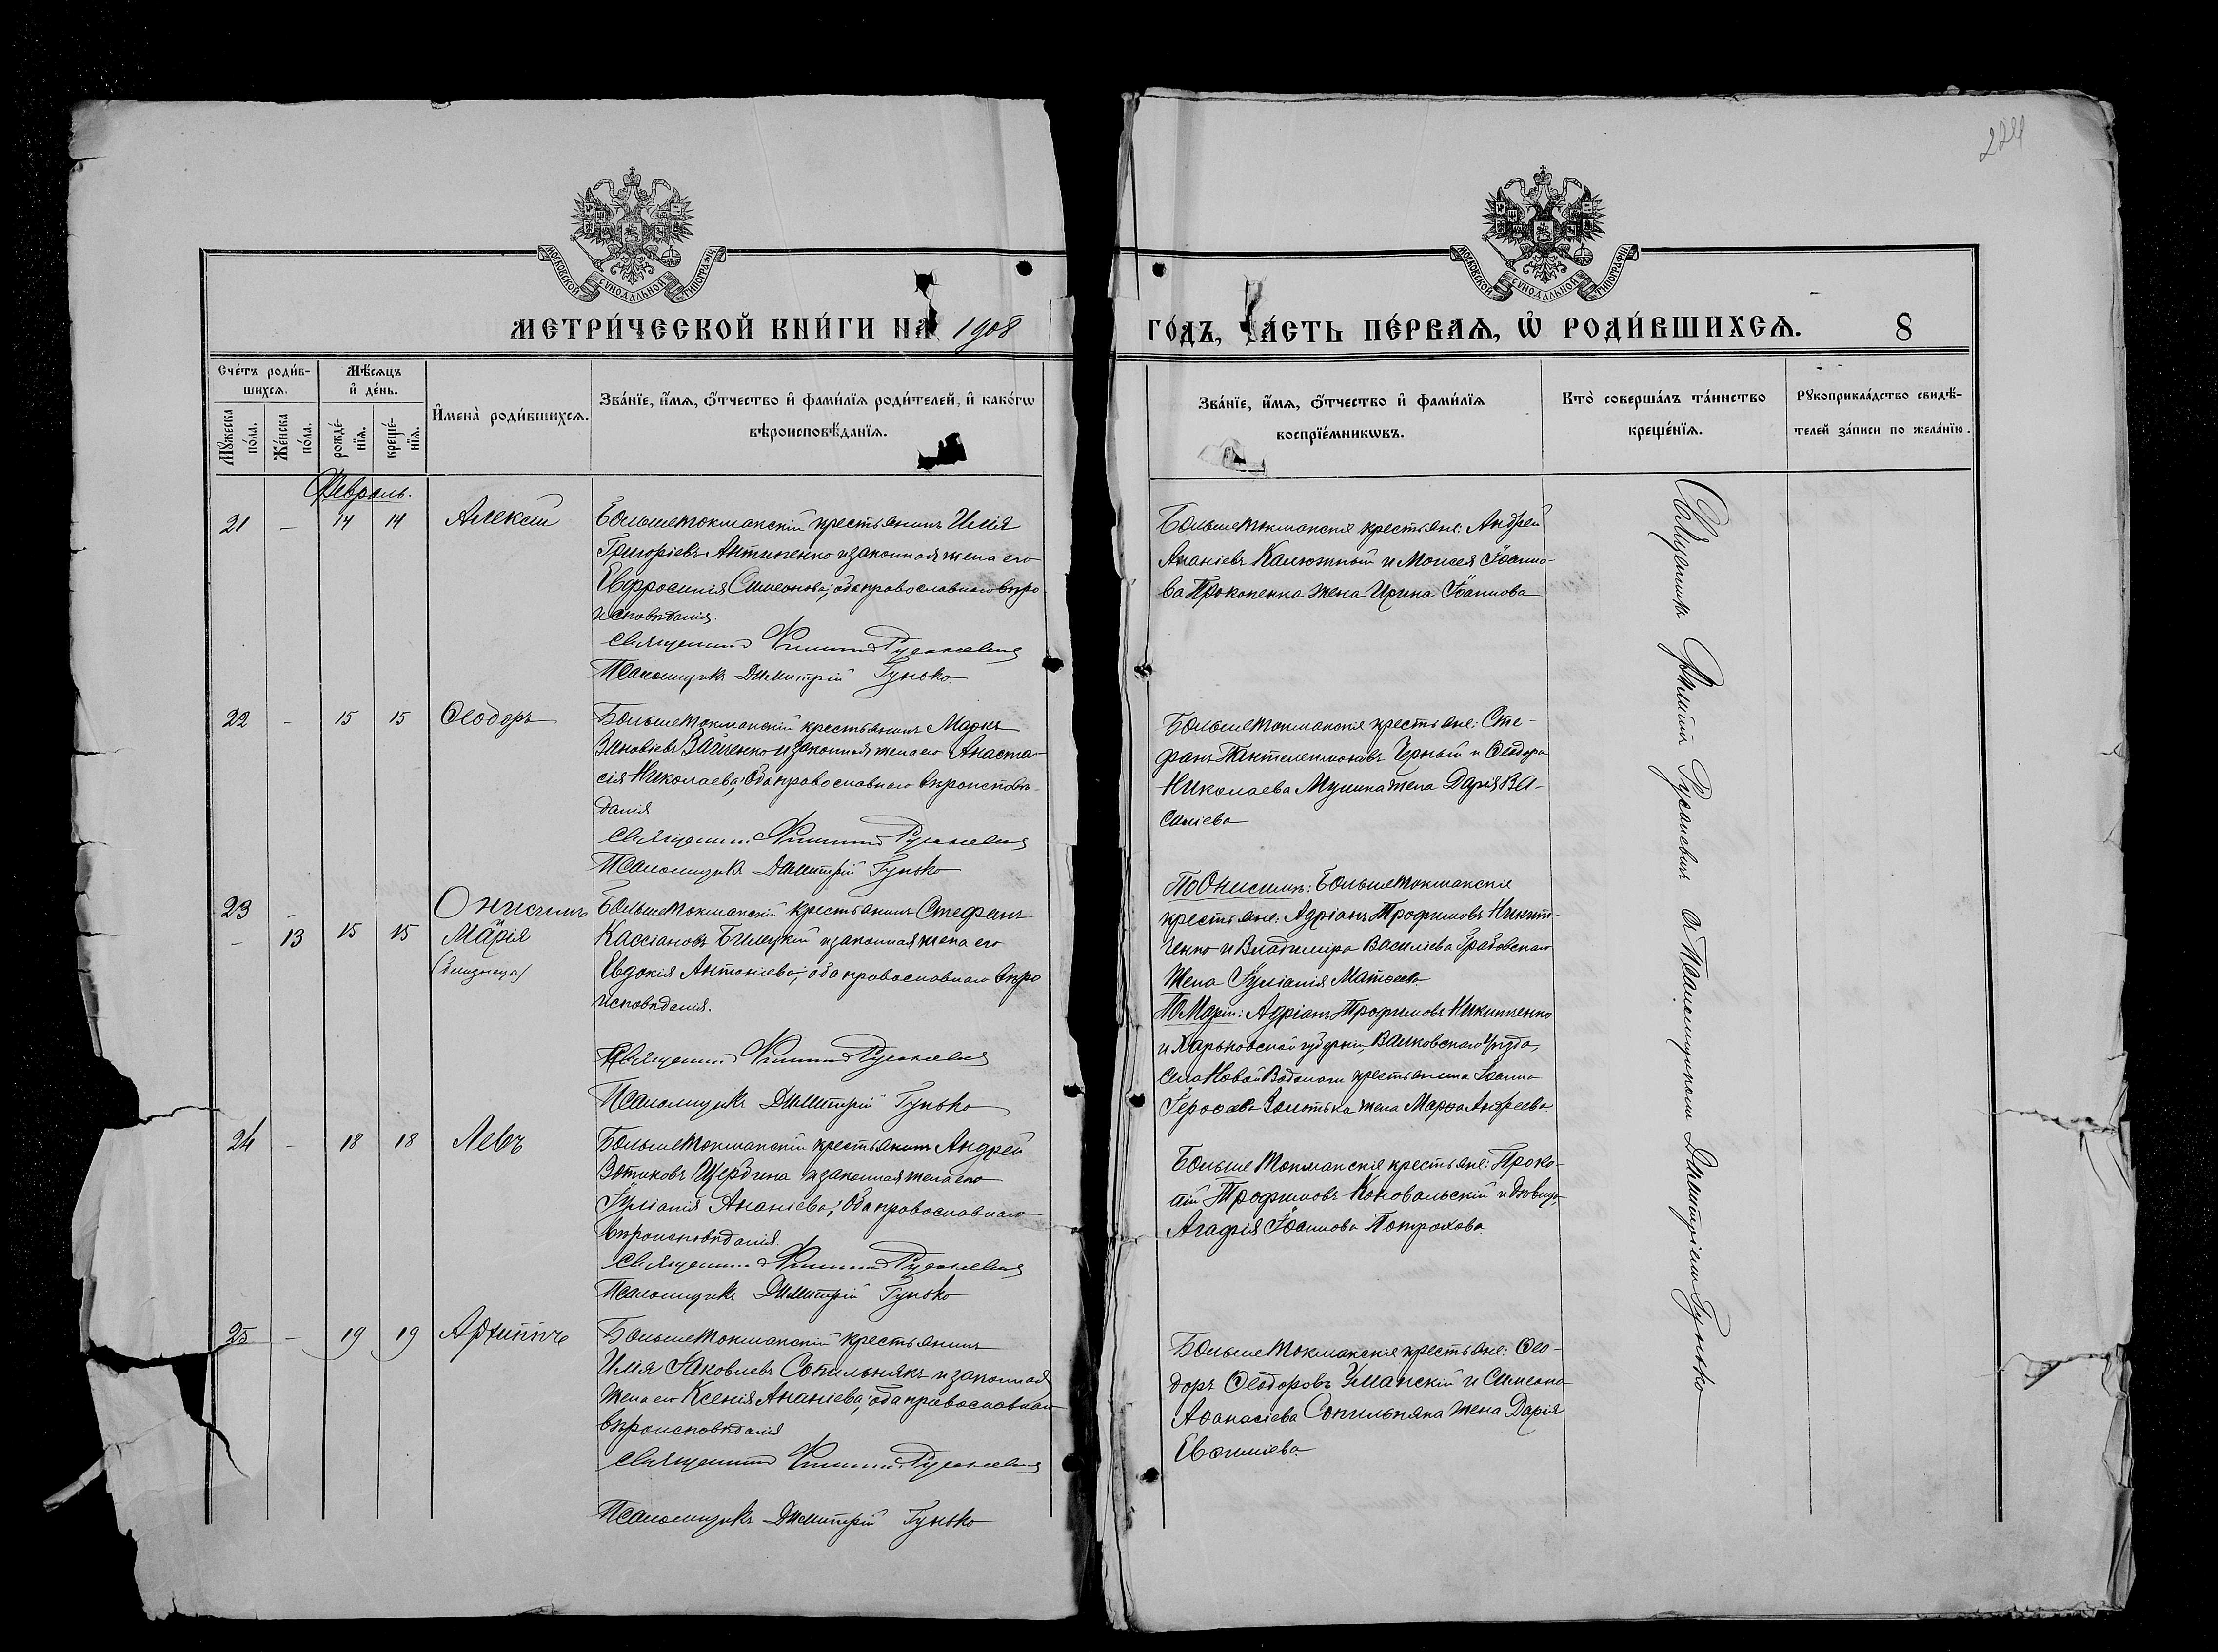 224
МОСКОВСКОЙ СѴНОДАЛЬНОЙ ТИПОГРАФІИ
МОСКОВСКОЙ СѴНОДАЛЬНОЙ ТИПОГРАФІИ
МЕТРИ́ЧЕСКОЙ КНИ́ГИ НА 1908
ГО́ДЪ, ЧА́СТЬ ПЕ́РВАѦ, Ѡ҆ РОДИ́ВШИХСѦ. 8
Сче́тъ роди́в-
шихсѧ.
Мꙋ́жеска
по́ла.
Же́нска
по́ла.
Мѣ́сѧцъ
и҆ де́нь.
рожде́-
нїѧ.
креще́-
нїѧ.
И҆мена̀ роди́вшихсѧ.
Зва́нїе, и҆́мѧ, ѻ҆́тчество и҆ фами́лїѧ роди́телей, и҆ како́гѡ
вѣроисповѣ́данїѧ.
Зва́нїе, и҆́мѧ, ѻ҆́тчество и҆ фами́лїѧ
воспрїе́мникѡвъ.
Кто̀ соверша́лъ та́инство
креще́нїѧ.
Рꙋкоприкла́дство свидѣ́-
телей за́писи по жела́нїю.
Февраль.
21 - 14 14 Алексій
Большетокмакскій крестьянинъ Илія
Григоріевъ Антипенко и законная жена его
Евфросинія Симеонова; оба православнаго вѣро
исповѣданія.
Священникъ Филиппъ Русаневичъ
Псаломщикъ Димитрій Гунько
Большетокмакскіе крестьяне: Андрей
Ананіевъ Калюжный и Моисея Іоанно-
ва Прокопенка жена Ирина Іоаннова
22 - 15 15 Ѳеодоръ
Большетокмакскій крестьянинъ Маркъ
Зиновіевъ Зайченко и законная жена его Анаста-
сія Николаева; оба православнаго вѣроисповѣ-
данія
Священникъ Филиппъ Русаневичъ
Псаломщикъ Димитрій Гунько
Большетокмакскіе крестьяне: Сте-
фанъ Пантелеимоновъ Черный и Ѳеодора
Николаева Мушка жена Дарія Ва-
силіева
23 - Онисимъ
- 13 15 15 Марія
(близнецы)
Большетокмакскій крестьянинъ Стефанъ
Кассіановъ Билецкій и законная жена его
Евдокія Антоніева; оба православнаго вѣро
исповѣданія.
Священникъ Филиппъ Русаневичъ
Псаломщикъ Димитрій Гунько
По Онисимѣ: Большетокмакскіе
крестьяне: Адріанъ Трофимовъ Никит-
ченко и Владиміра Василіева Грабовскаго
жена Іуліанія Матѳеева
По Маріи: Адріанъ Трофимовъ Никитченко
и Харьковской губерніи, Валковскаго уѣзда,
села Новой Водолаги крестьянина Іоанна
Іероѳеева Золотька жена Марѳа Андреева
24 - 18 18 Левъ
Большетокмакскій крестьянинъ Андрей
Зотиковъ Щербина и законная жена его
Іуліанія Ананіева; оба православнаго
вѣроисповѣданія.
Священникъ Филиппъ Русаневичъ
Псаломщикъ Димитрій Гунько
Большетокмакскіе крестьяне: Проко-
пій Трофимовъ Коновальскій и дѣвица
Агафія Іоаннова Патрахова.
25 - 19 19 Архиппъ
Большетокмакскій крестьянинъ
Илія Іаковлевъ Сопильнякъ и законная
жена его Ксенія Ананіева; оба православнаго
вѣроисповѣданія
Священникъ Филиппъ Русаневичъ
Псаломщикъ Димитрій Гунько
Большетокмакскіе крестьяне: Ѳео-
доръ Ѳеодоровъ Уманскій и Симеона
Аѳанасіева Сопильняка жена Дарія
Евѳиміева.
Священникъ Филиппъ Русаневичъ съ Псаломщикомъ Димитріемъ Гунько